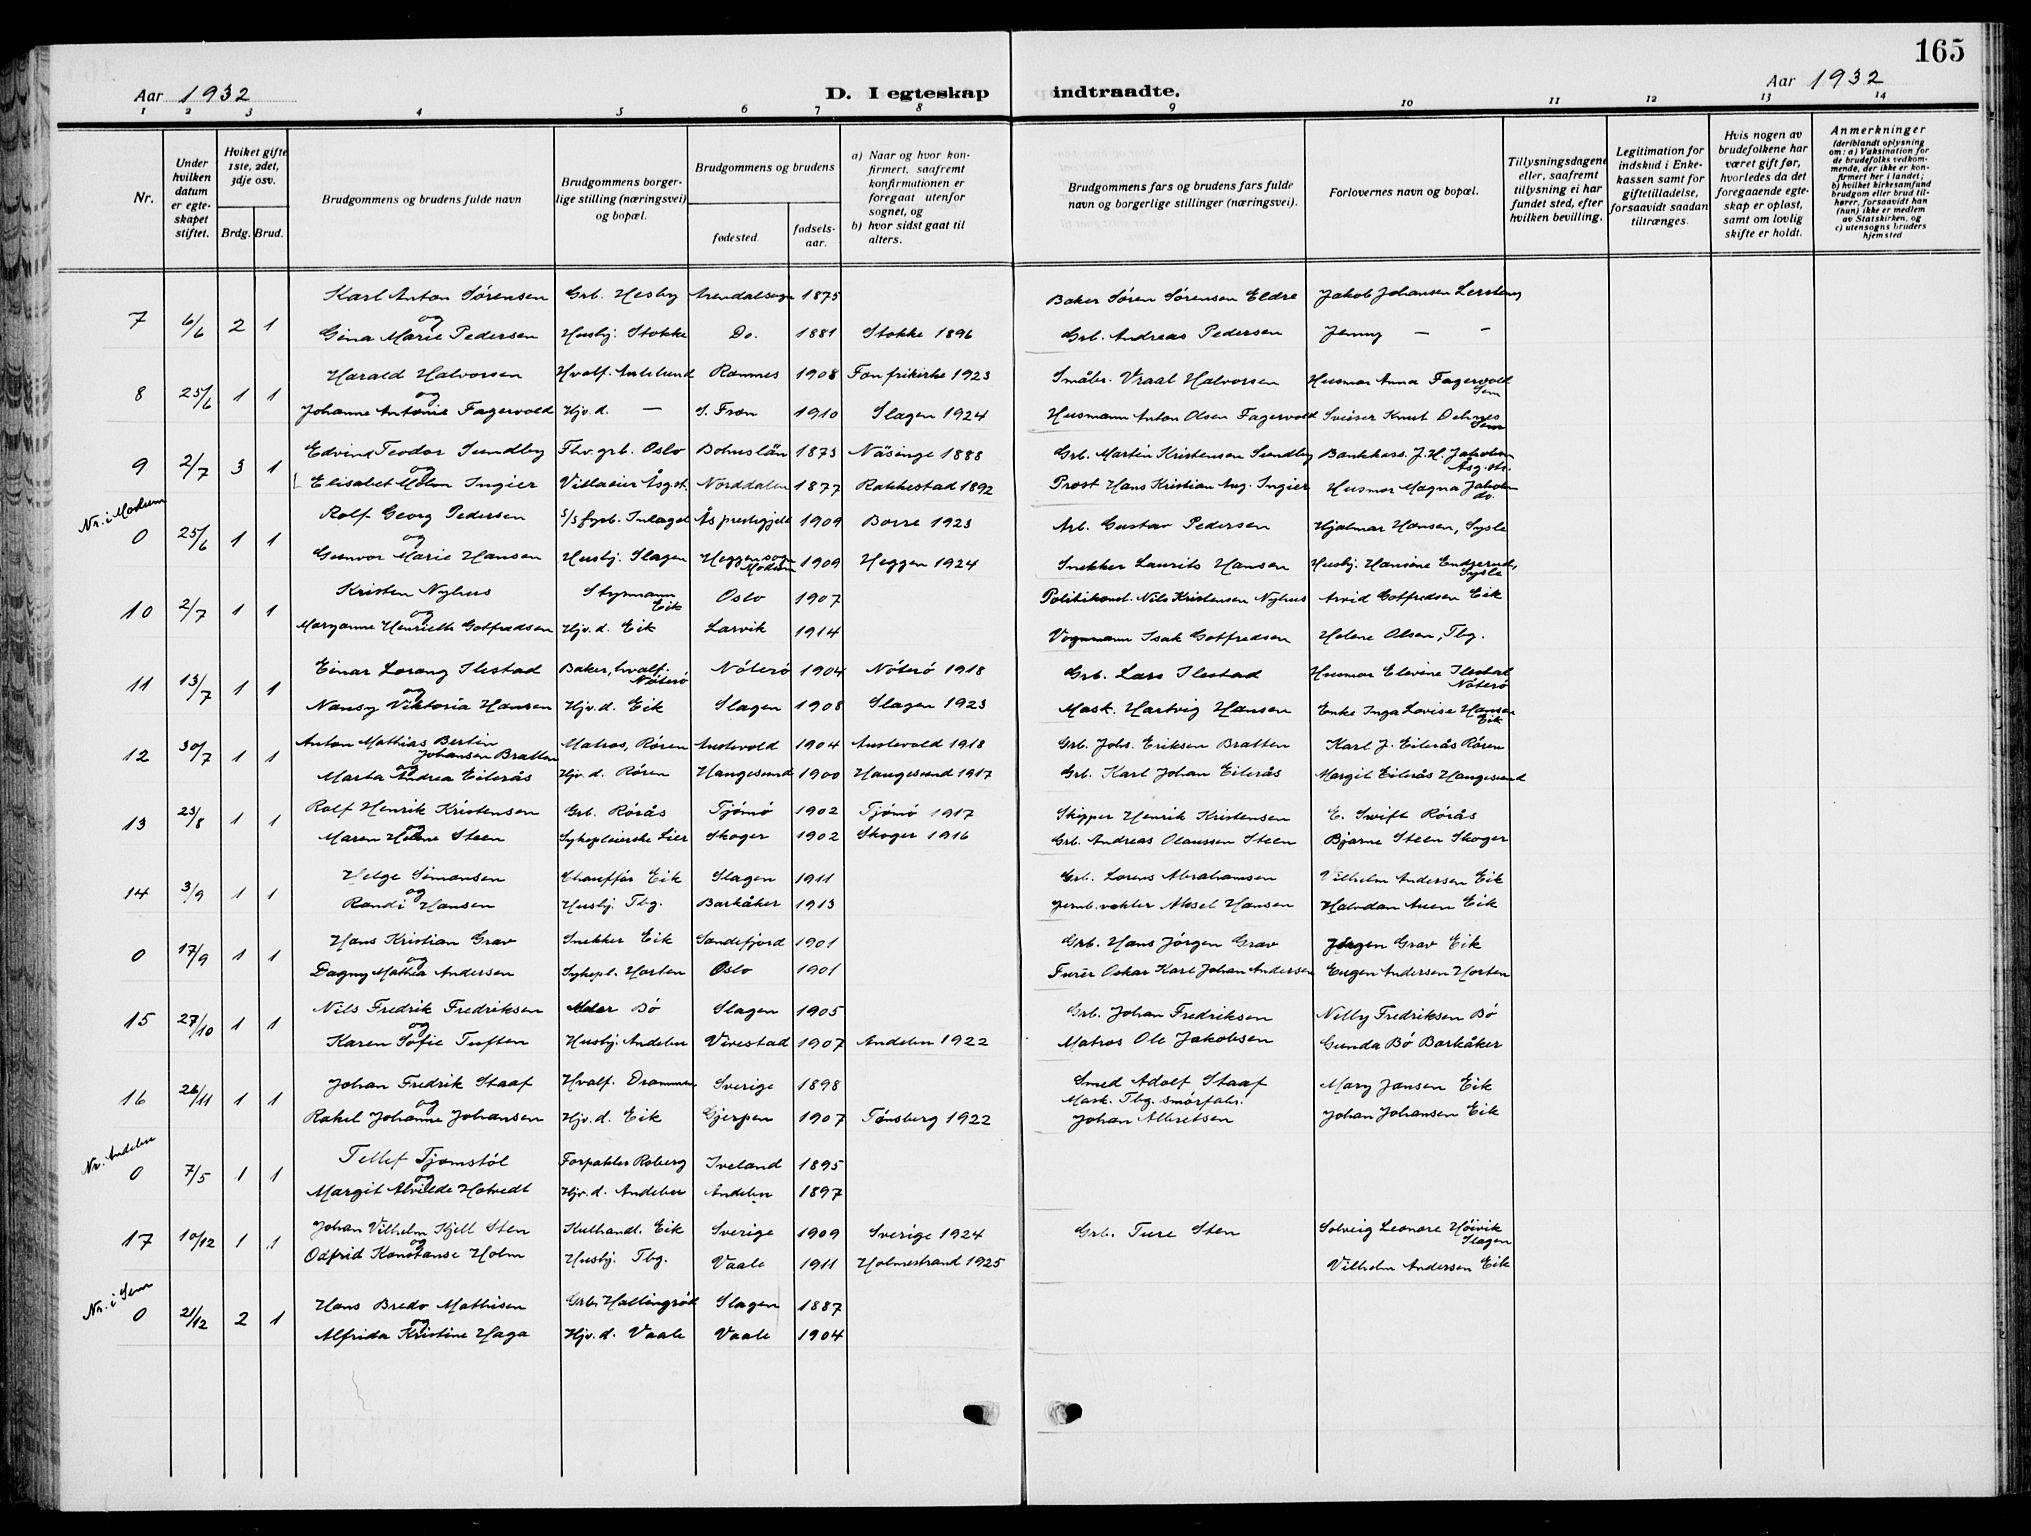 165
Aar 1932
D. I egteskap indtraadte.
Aar 1932
1 2 3 4 5 6 7 8 9 10 11 12 13 14
Nr.
Under hvilken datum er egteskapet stiftet.
Hviket gifte 1ste, 2det, 3dje osv.
Brdg. Brud.
Brudgommens og brudens fulde navn
Brudgommens borgerlige stilling (næringsvei) og bopæl.
Brudgommens og brudens
fødested. fødselsaar.
a) Naar og hvor konfirmert, saafremt konfirmationen er foregaat utenfor sognet, og
b) hvor sidst gaat til alters.
Brudgommens fars og brudens fars fulde navn og borgerlige stillinger (næringsvei).
Forlovernes navn og bopæl.
Tillysningsdagene eller, saafremt tillysning ei har fundet sted, efter hvilken bevilling.
Legitimation for indskud i Enkekassen samt for giftetilladelse, forsaavidt saadan tiltrænges.
Hvis nogen av brudefolkene har været gift før, hvorledes da det foregaaende egteskap er opløst, samt om lovlig skifte er holdt.
Anmerkninger (deriblandt oplysning om: a) Vaksination for de brudefolks vedkommende, der ikke er konfirmert her i landet; b) hvilket kirkesamfund brudgom eller brud tilhører, forsaavidt han (hun) ikke er medlem av Statskirken, og c) utensogns bruders hjemsted
Karl Anton Sørensen Grb. Hesby Arendalsogn 1875 Baker Søren Sørensen Eldre Jakob Johansen
7 6/6 2 1 og
Gina Marie Pedersen Husbj. Stokke Do. 1881 Stokke 1896 Grb. Andreas Pedersen Jenny — –
Harald Halvorsen Hvalf. Ramnes 1908 Fon frikirke 1923 Småbr. Vraal Halvorsen Husmor Anna Fagervold Sem
8 25/6 1 1 og
Johanne Antonie Fagervold Hjv.d. — S. Fron 1910 Slagen 1924 Husmann Anton Olsen Fagervold Sveiser Knut Sem
Edvin Teodor Sundby Fhv. grb. Oslo Bohuslän 1873 Näsinge 1888 Grb. Martin Kristensen Sundby Bankkass. J. H. Jakobsen Åsg. st.
9 2/7 3 1 og
Elisabet Holm Ingier Villaeier Åsg.st. Norddalen 1877 Rakkestad 1892 Prost Hans Kristian Aug. Ingier Husmor Magna Jakobsen do.
Nr. i Modum
Rolf Georg Pedersen S/S fyrb. Ås prestegjeld 1909 Borre 1923 Arb. Gustav Pedersen Hjalmar Hansen, Sysle
0 25/6 1 1 og
Gunvor Marie Hansen Husbj. Slagen Heggen sogn Modum 1909 Heggen 1924 Snekker Laurits Hansen Husbj. Hansine Endgerud, Sysle
Kristen Nyhus Styrmann Eik Oslo 1907 Politikonst. Nils Kristensen Nyhus Arvid Gotfredsen Eik
10 2/7 1 1 og
Maryanne Henriette Gotfredsen Hjv.d. Eik Larvik 1914 Vognmann Isak Gotfredsen Helene Olsen, Tbg.
Einar Lorang Ilestad Baker, hvalf. Nøterø Nøterø 1904 Nøterø 1918 Grb. Lars Ilestad Husmor Elevine Ilestad Nøterø
11 13/7 1 1 og
Nansy Viktoria Hansen Hjv.d. Eik Slagen 1908 Slagen 1923 Mask. Hartvig Hansen Enke Inga Lovise Hansen Eik
Anton Mathias Bertin Johansen Bratten Matros, Røren Austevold 1904 Austevold 1918 Grb. Johs. Eriksen Bratten Karl J. Eilerås Røren
12 30/7 1 1 og
Marta Andrea Eilerås Hjv.d. Røren Haugesund 1900 Haugesund 1917 Grb. Karl Johan Eilerås Margit Eilerås Haugesund
Rolf Henrik Kristensen Grb. Rørås Tjømø 1902 Tjømø 1917 Skipper Henrik Kristensen E. Swift Rørås
13 23/8 1 1 og
Maren Helene Steen Sykepleierske Lier Skoger 1902 Skoger 1916 Grb. Andreas Olaussen Steen Bjarne Steen Skoger
Helge Simonsen Chauffør Eik Slagen 1911 Grb. Lorens Abrahamsen Vilhelm Andersen Eik
14 3/9 1 1 og
Randi Hansen Husbj. Tbg. Barkåker 1913 Jernb.vokter Aksel Hansen Halvdan Auen Eik
Hans Kristian Grav Snekker Eik Sandefjord 1901 Grb. Hans Jørgen Grav Jørgen Grav Eik
0 17/9 1 1 og
Dagny Mathea Andersen Sykepl. Horten Oslo 1901 Furér Oskar Karl Johan Andersen Eugen Andersen Horten
Nils Fredrik Fredriksen Bø Slagen 1905 Grb. Johan Fredriksen Nelly Fredriksen Bø
15 27/10 1 1 og
Karen Sofie Tuften Husbj. Andebu Vivestad 1907 Andebu 1922 Matros Ole Jakobsen Gunda Bø Barkåker
Johan Fredrik Staaf Hvalf. Drammen Sverige 1898 Smed Adolf Staaf Mary Jansen Eik
16 26/11 1 1 og
Rakel Johanne Johansen Hjv.d. Eik Gjerpen 1907 Tønsberg 1922 Mask. Tbg. smørfabr. Johan Albretsen Johan Johansen Eik
Nr. Andebu
Tellef Tjomstøl Forpakter Roberg Iveland 1895
0 7/5 1 1 og
Margit Alvilde Hotvedt Hjv.d. Andebu Andebu 1897
Johan Vilhelm Kjell Sten Kulhandl. Eik Sverige 1909 Sverige 1924 Grb. Ture Sten Solveig Leonore Høivik Slagen
17 10/12 1 1 og
Odfrid Konstanse Holm Husbj. Tbg. Vaale 1911 Holmestrand 1925 Vilhelm Andersen Eik
Nr. i Sem
Hans Bredo Mathisen Grb. Hallingrød Slagen 1887
0 21/12 2 1 og
Alfrida Kristine Haga Hjv.d. Vaale Vaale 1904